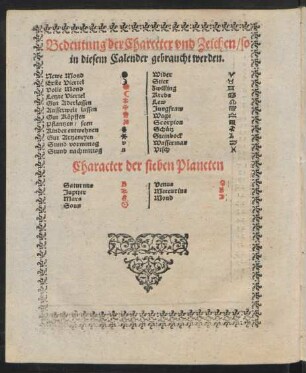 Bedeutung der Charecter vnd Zeichen / so
in diesem Calender gebraucht werden.
Newe Mond
Erste Viertel
Volle Mond
Letzte Viertel
Gut Aderlassen
Gut
Pflantzen /
Kinder entwehnen
Gut Artzneyen
Stund vormittag
Stund nachmittag
Wider
Stier
Zwilling
Krebs
Lew
Jungfraw
Wage
Scorpion
Schütz
Steinbock
Wasserman
Visch
Character der sieben Planeten
Saturnus
Jupiter
Mars
Sonn
Venus
Mercurius
Mond